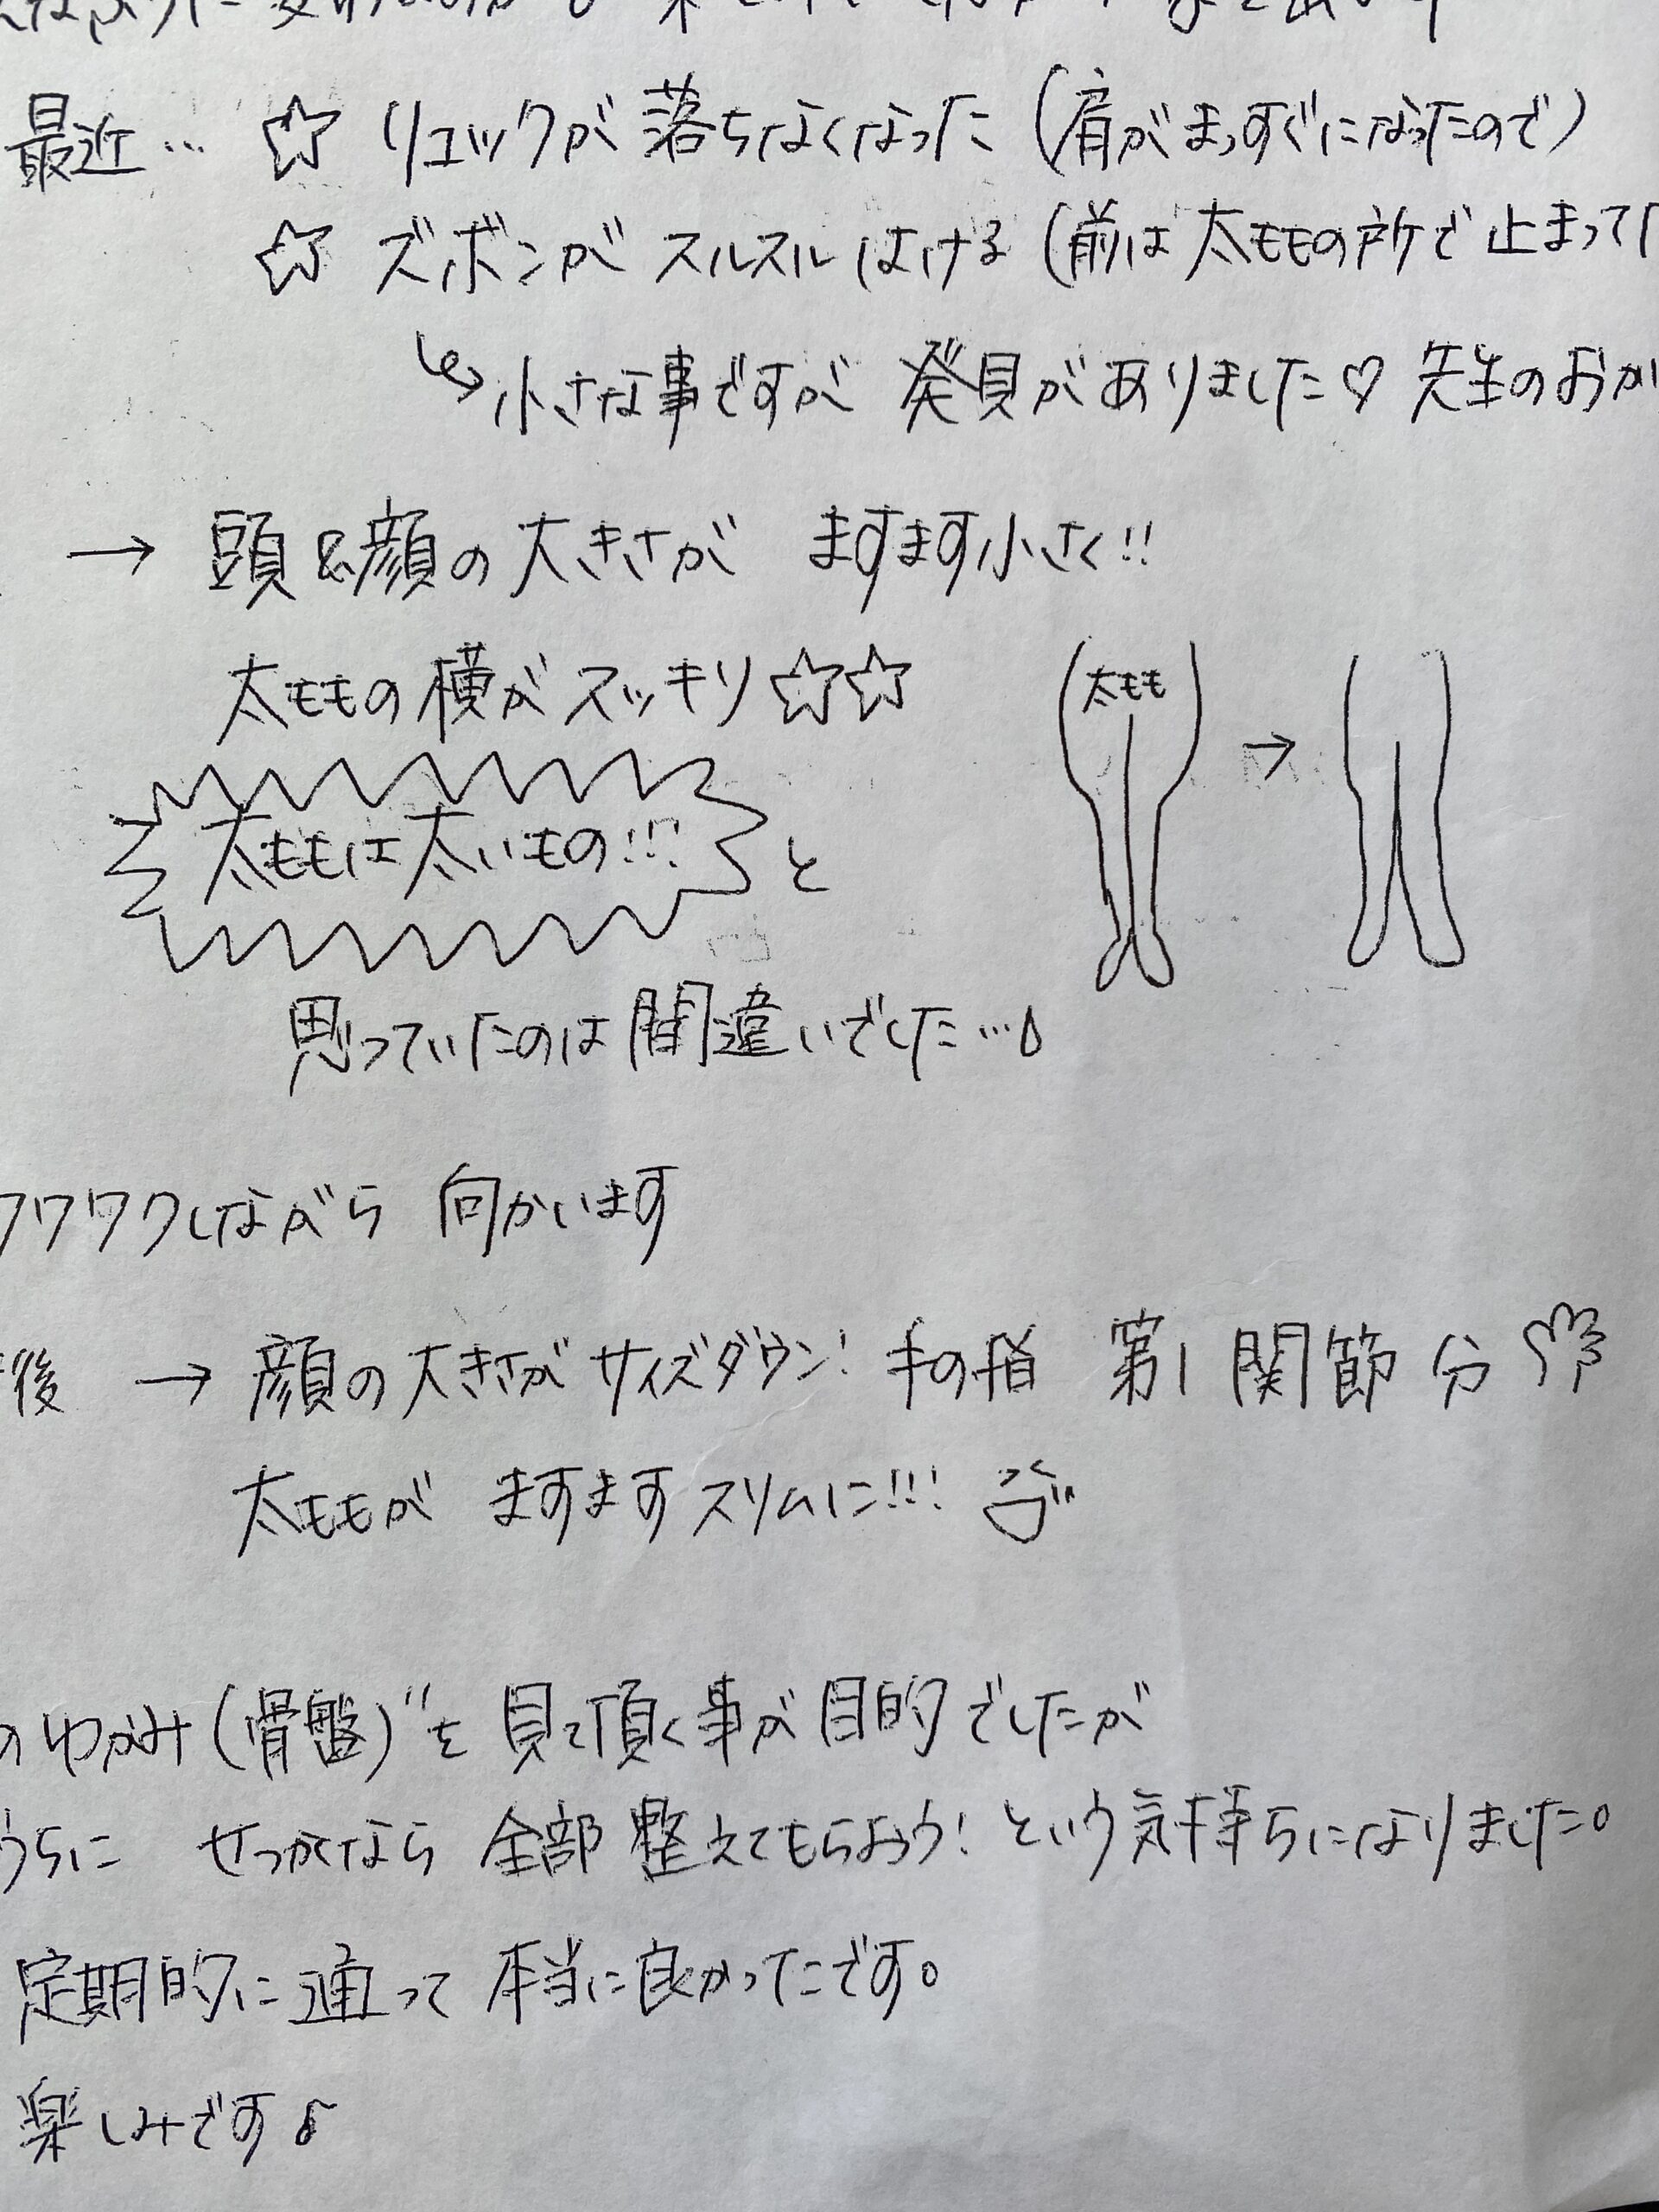 最近… ☆ リュックが落ちなくなった (肩がまっすぐになったので)
☆ ズボンがスルスルはける (前は太モモの所で止まって
↳ 小さな事ですが 発見がありました♡ 先生のおか
→ 頭&顔の大きさが ますます小さく!!
太モモの横がスッキリ☆☆
太モモ →
太モモは太いもの!!! と
思っていたのは間違いでした…
ワクワクしながら 向かいます
後 → 顔の大きさがサイズダウン! 手の指 第1関節分
太モモが ますますスリムに!!!
のゆがみ(骨盤)"を見て頂く事が目的でしたが
うちに せっかくなら 全部整えてもらおう! という気持ちになりました。
定期的に通って 本当に良かったです。
楽しみです♪